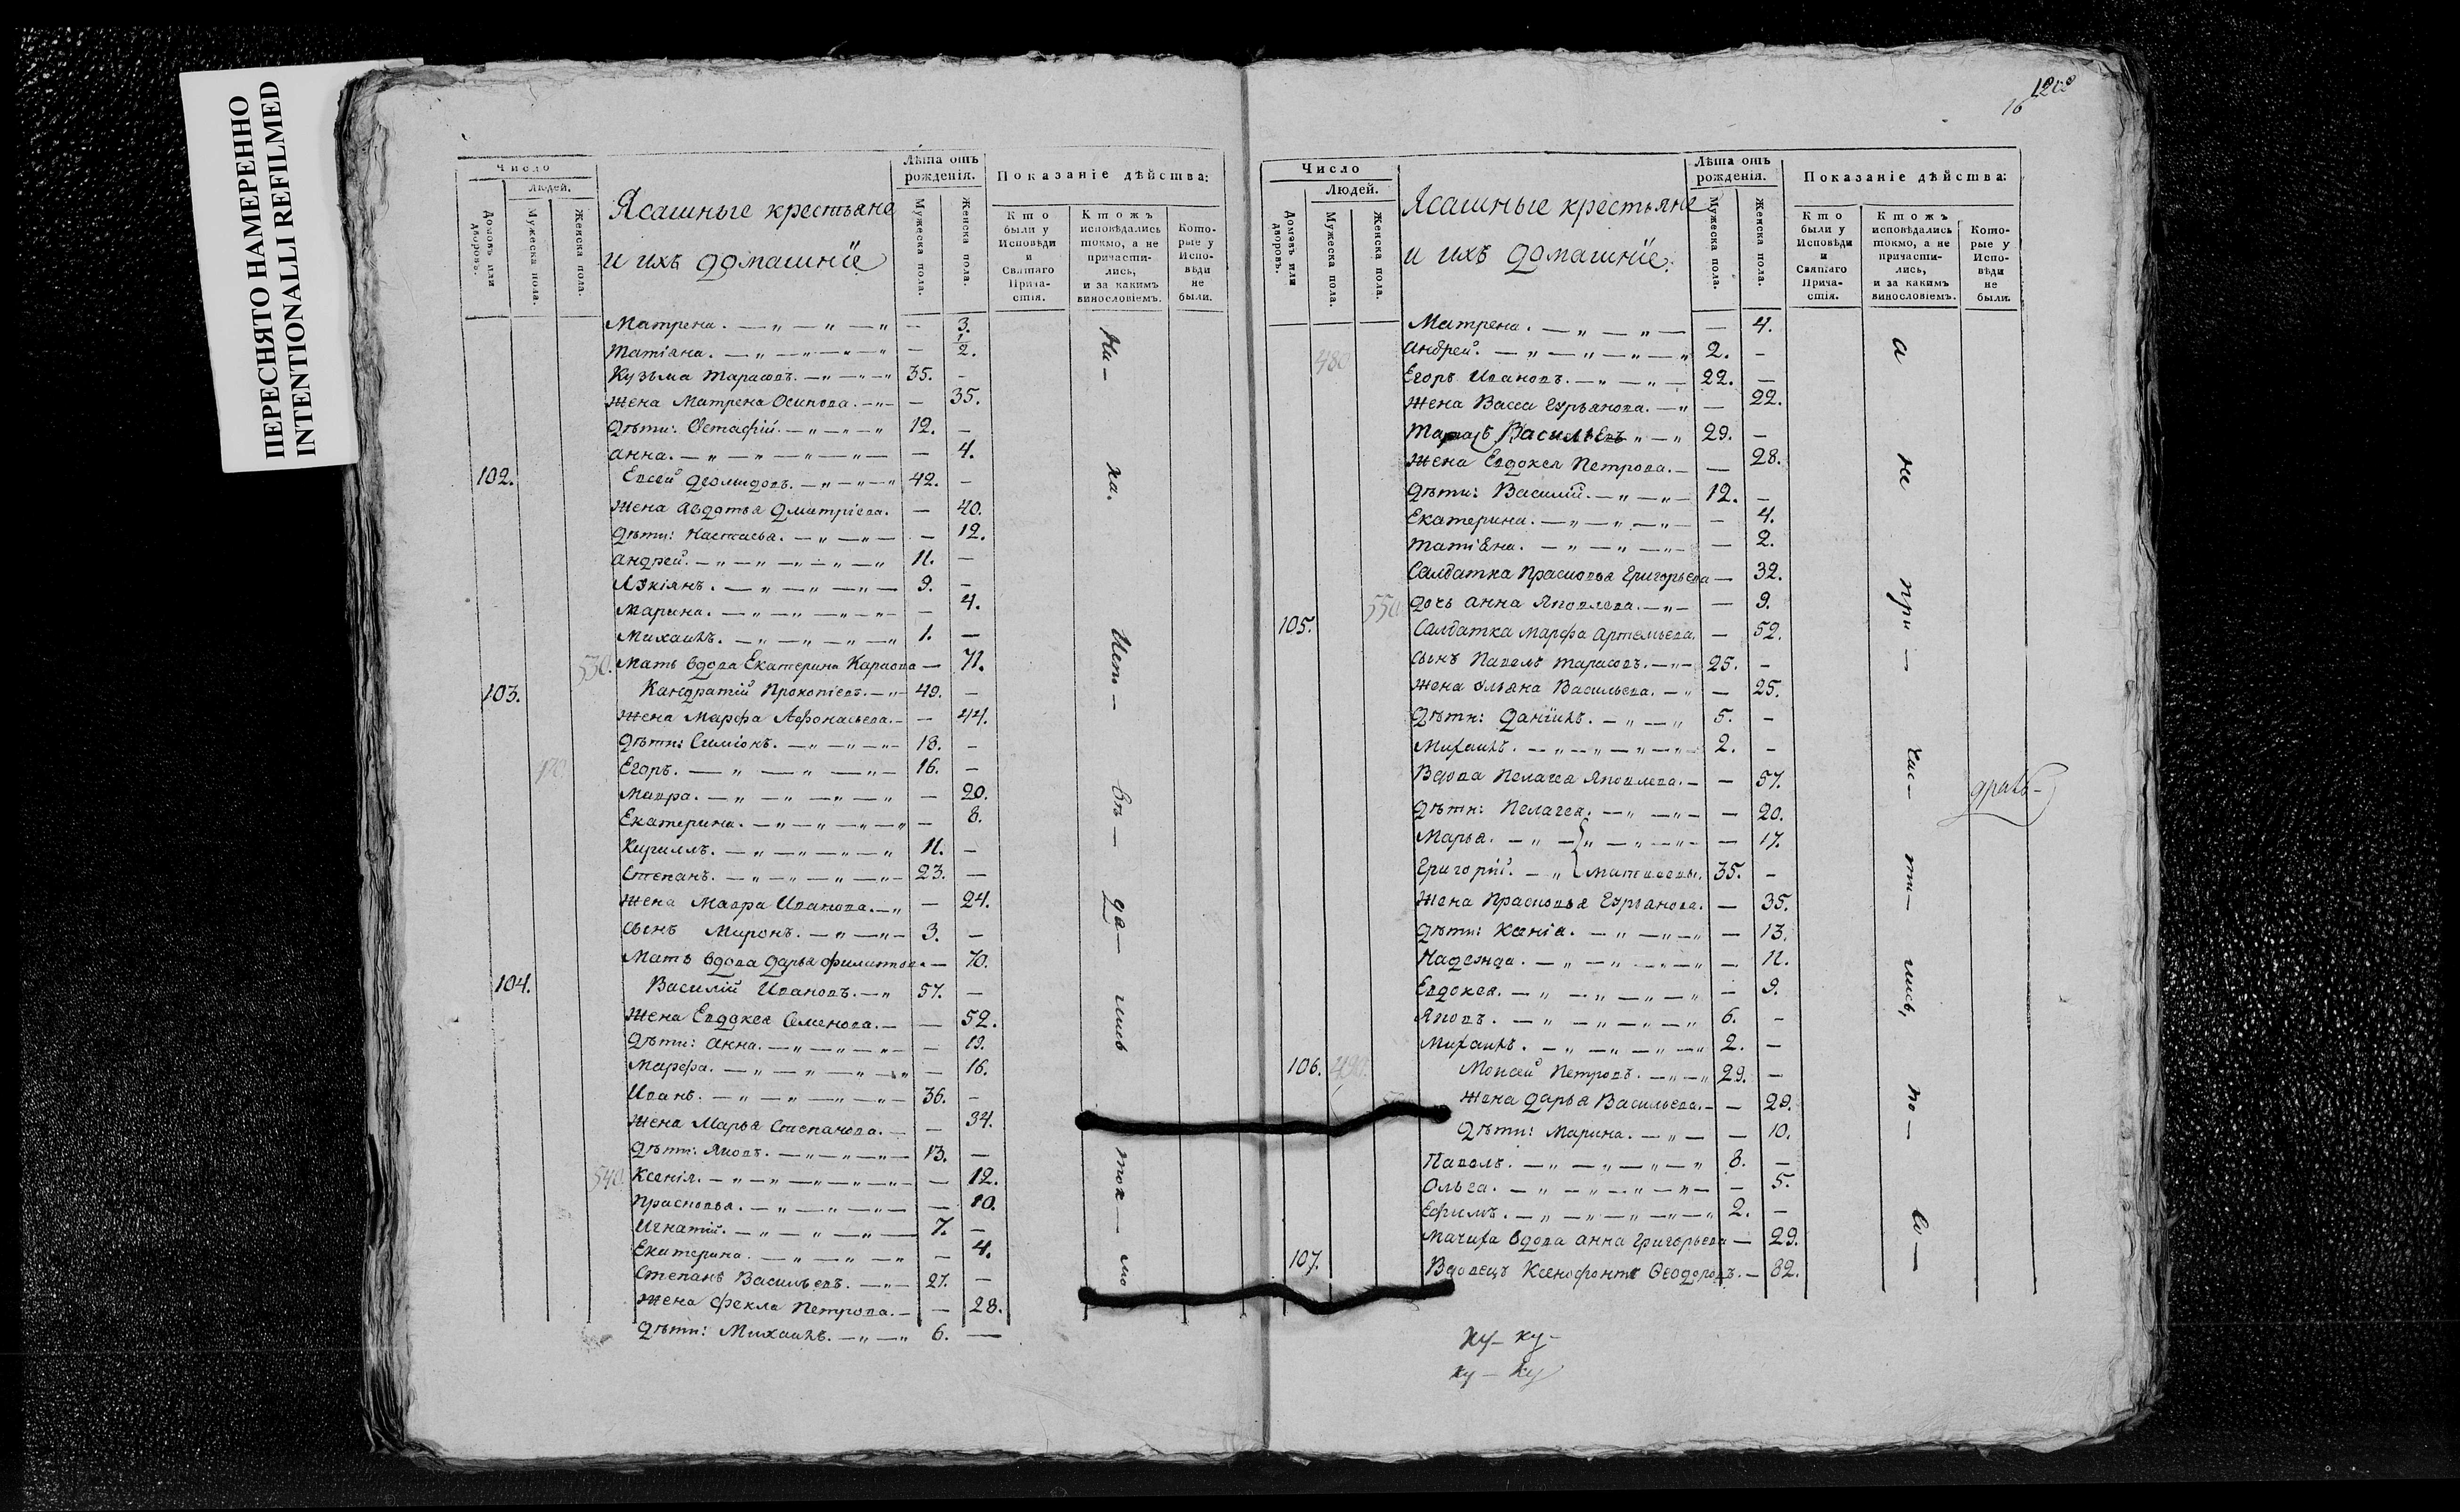 ПЕРЕСНЯТО НАМЕРЕННО
INTENTIONALLI REFILMED
Число
Людей.
Домовъ или дворовъ.
Мужеска пола.
Женска пола.
Ясашные крестьяне
и ихъ домашнїе
Лѣта отъ рожденія.
Мужеска пола.
Женска пола.
Показаніе дѣйства:
Кто были у Исповѣди и Святаго Прича-стія.
Ктожъ исповѣдались токмо, а не причасти-лись, и за какимъ винословіемъ.
Кото-рые у Испо-вѣди не были.
Матрена. — 3.
Татіана. — 1/2.
Кузьма Тарасовъ. 35. —
жена Матрена Осипова. — 35.
дѣти: Остафій. 12. —
анна. — 4.
102. Евсей Деомидовъ. 42. —
жена авдотья Дмитріева. — 40.
дѣти: Настасья. — 12.
андрей. 11. —
Лукіянъ. 9. —
Марина. — 4.
Михаилъ. 1. —
530. Мать вдова Екатерина Карпова — 71.
103. Кандратій Прокопіевъ. 49. —
жена Марфа Афонасьева. — 44.
дѣти: Симіонъ. 18. —
170 Егоръ. 16. —
Мавра. — 20.
Екатерина. — 8.
Кириллъ. 11. —
Степанъ. 23. —
жена Мавра Иванова. — 24.
сынъ Миронъ. 3. —
Мать вдова Дарья Филипова — 70.
104. Василій Ивановъ. 57. —
жена Евдокея Семенова. — 52.
дѣти: анна. — 19.
Марфа. — 16.
Иванъ. 36. —
жена Марья Степанова. — 34.
дѣти: Яковъ. 13. —
540. Ксенія. — 12.
Прасковья. — 10.
Игнатій. 7. —
Екатерина. — 4.
Степанъ Васильевъ. 27. —
жена Фекла Петрова. — 28.
дѣти: Михаилъ. 6. —
Ни — ка. Испо — вѣ — да — лись ток — мо
1202
16
Число
Людей.
Домовъ или дворовъ.
Мужеска пола.
Женска пола.
Ясашные крестьяне
и ихъ домашнїе.
Лѣта отъ рожденія.
Мужеска пола.
Женска пола.
Показаніе дѣйства:
Кто были у Исповѣди и Святаго Прича-стія.
Ктожъ исповѣдались токмо, а не причасти-лись, и за какимъ винословіемъ.
Кото-рые у Испо-вѣди не были.
Матрена. — 4.
480 андрей. 2. —
Егоръ Ивановъ. 22. —
жена Васса Гурьянова. — 22.
Тарасъ Васильевъ 29. —
жена Евдокея Петрова. — 28.
дѣти: Василій. 12. —
Екатерина. — 4.
Татіяна. — 2.
Салдатка Прасковья Григорьева — 32.
550 дочь анна Яковлева. — 9.
105. Салдатка марфа артемьева. — 52.
сынъ Павелъ тарасовъ. 25. —
жена ульяна Васильева. — 25.
дѣти: Данїилъ. 5. —
Михаилъ. 2. —
Вдова Пелагея Яковлева. — 57.
дѣти: Пелагея. — 20.
Марья. — 17.
Григорій. Матвеевы. 35. —
жена Прасковья Гурьянова. — 35.
дѣти: Ксенія. — 13.
Надежда. — 11.
Евдокея. — 9.
Яковъ. 6. —
Михаилъ. 2. —
106. 490. Моисей Петровъ. 29. —
жена Дарья Васильева. — 29.
дѣти: Марина. — 10.
Павелъ. 8. —
Ольга. — 5.
Ефимъ. 2. —
Мачиха вдова анна Григорьева — 29.
107. Вдовецъ Ксенофонтъ Ѳеодоровъ. — 82.
а не при — час — ти — лись, по —
ку — ку —
ку — ку